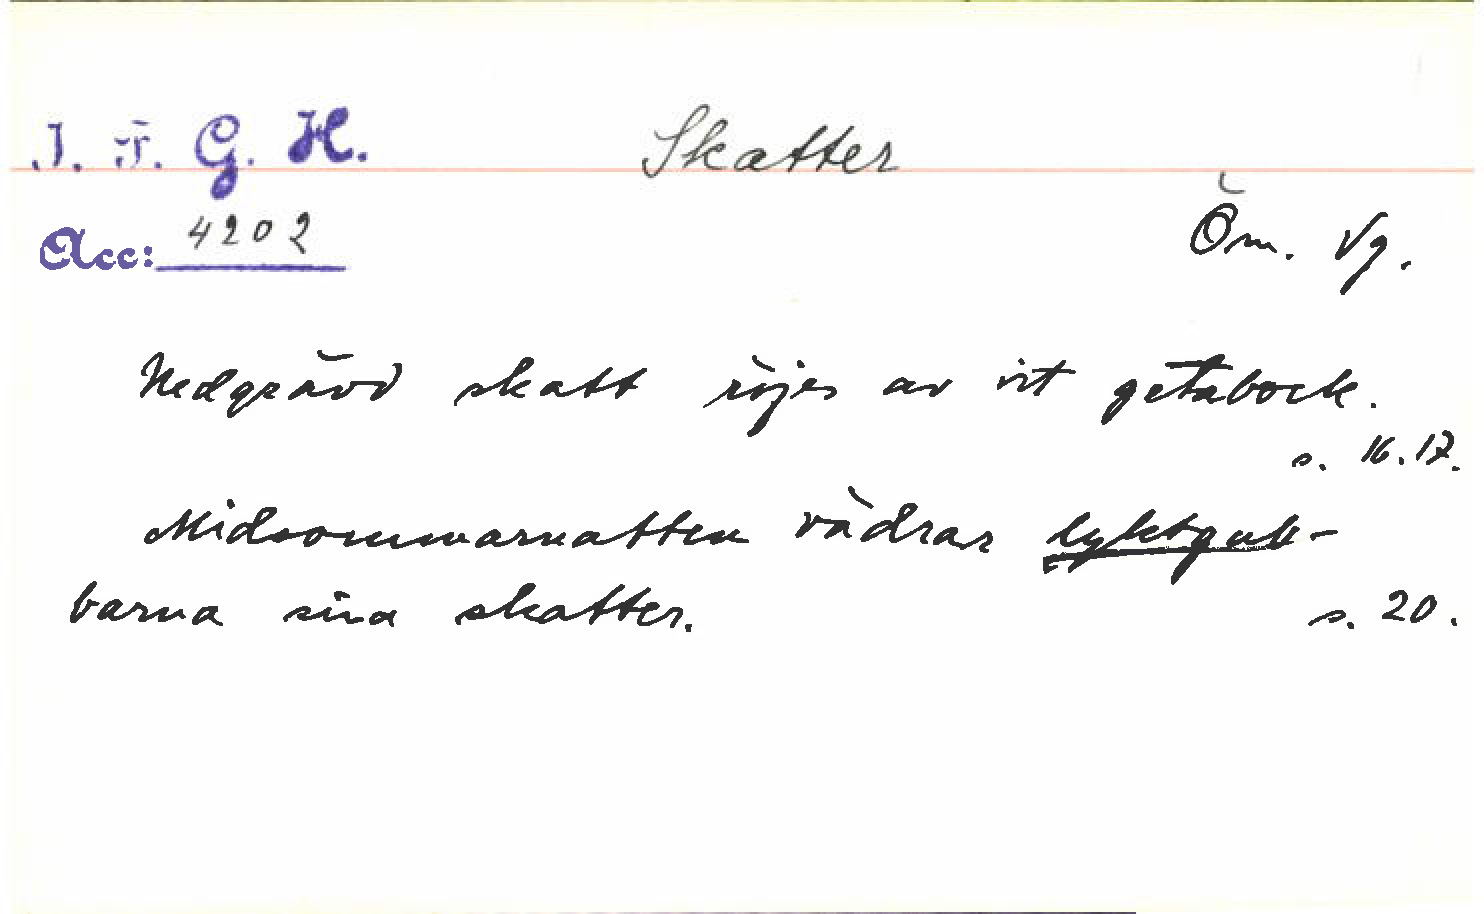 I. F. G. H.
Skatter
Acc: 4202
Öm. Vg.
Nedgrävd skatt röjes av vit getabock.
s. 16. 17.
Midsommarnatten vädrar lyktgub-
barna sina skatter.
s. 20.